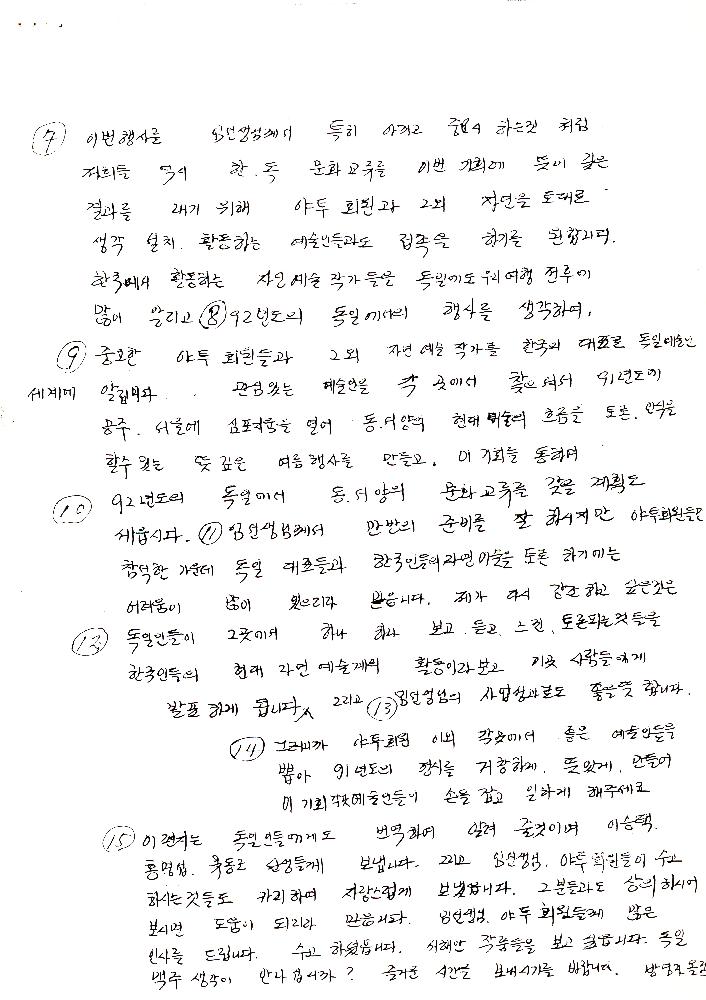 ⑦ 이번행사를 임선생님께서 특히 아끼고 중요시 하는것 처럼
저희들 역시 한.독 문화교류를 이번 기회에 뜻이 깊은
결과를 내기 위해 야투 회원과 그외 자연을 토대로
생각 설치. 활동하는 예술인들과도 접촉을 하기를 원합니다.
한국에서 활동하는 자연예술 작가들을 독일에도 우리여행 전후에
많이 알리고 ⑧ 92년도의 독일에서의 행사를 생각하여,
⑨ 중요한 야투 회원들과 그외 자연 예술작가를 한국의 대표로 독일예술인
세계에 알립니다. 관심있는 예술인을 각 곳에서 찾으셔서 91년도에
공주. 서울에 심포지움을 열어 동.서양의 현대 미술의 흐름을 토론. 인식을
할수 있는 뜻 깊은 여름행사를 만들고. 이 기회를 통하여
⑩ 92년도의 독일에서 동.서양의 문화교류를 갖을 계획도
세웁시다. ⑪ 임선생님께서 만반의 준비를 잘 하시지만 야투회원들만
참석한 가운데 독일 대표들과 한국인들의 자연미술을 토론 하기에는
어려움이 많이 있으리라 믿습니다. 제가 다시 강조하고 싶은것은
⑫ 독일인들이 그곳에서 하나 하나 보고. 듣고. 느낀, 토론되는것들을
한국인들의 현대 자연 예술계의 활동이라보고 이곳 사람들에게
발표 하게 됩니다. 그리고 ⑬ 임선생님의 사업성과로도 좋을듯 합니다.
⑭ 그러니까 야투회원 이외 각곳에서 좋은 예술인들을
뽑아 91년도의 전시를 거창하게. 뜻있게. 만들어
이 기회 각곳예술인들이 손을 잡고 일하게 해주세요
⑮ 이 편지는 독일인들에게도 번역하여 알려 줄것이며 이승택.
홍명섭. 육동 선생들께 보냅니다. 그리고 임선생님. 야투회원들이 수고
하시는것들도 카피하여 자랑스럽게 보냈습니다. 그분들과도 상의하시어
보시면 도움이 되리라 믿습니다. 임선생님. 야투 회원들께 많은
인사를 드립니다. 수고 하셨습니다. 서해안 작품들을 보고 싶습니다. 독일
맥주 생각이 안나십니까? 즐거운 시간을 보내시기를 바랍니다.